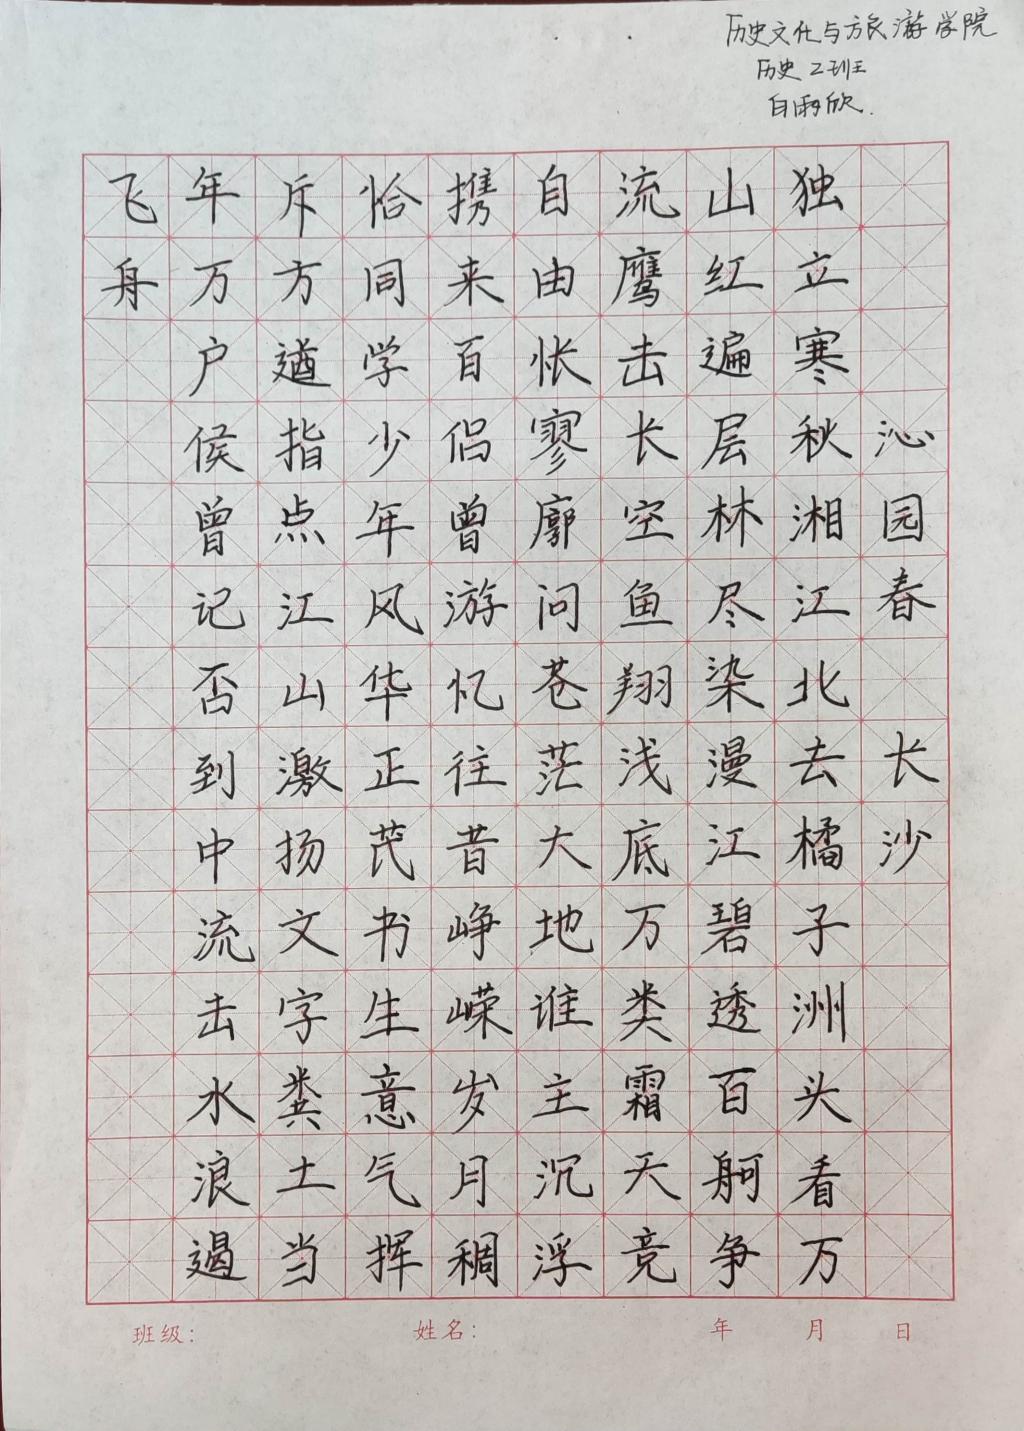 历史文化与旅游学院
历史2班
白雨欣.
沁园春 长沙
独立寒秋湘江北去橘子洲头看万
山红遍层林尽染漫江碧透百舸争
流鹰击长空鱼翔浅底万类霜天竞
自由怅寥廓问苍茫大地谁主沉浮
携来百侣曾游忆往昔峥嵘岁月稠
恰同学少年风华正茂书生意气挥
斥方遒指点江山激扬文字粪土当
年万户侯曾记否到中流击水浪遏
飞舟
班级： 姓名： 年 月 日